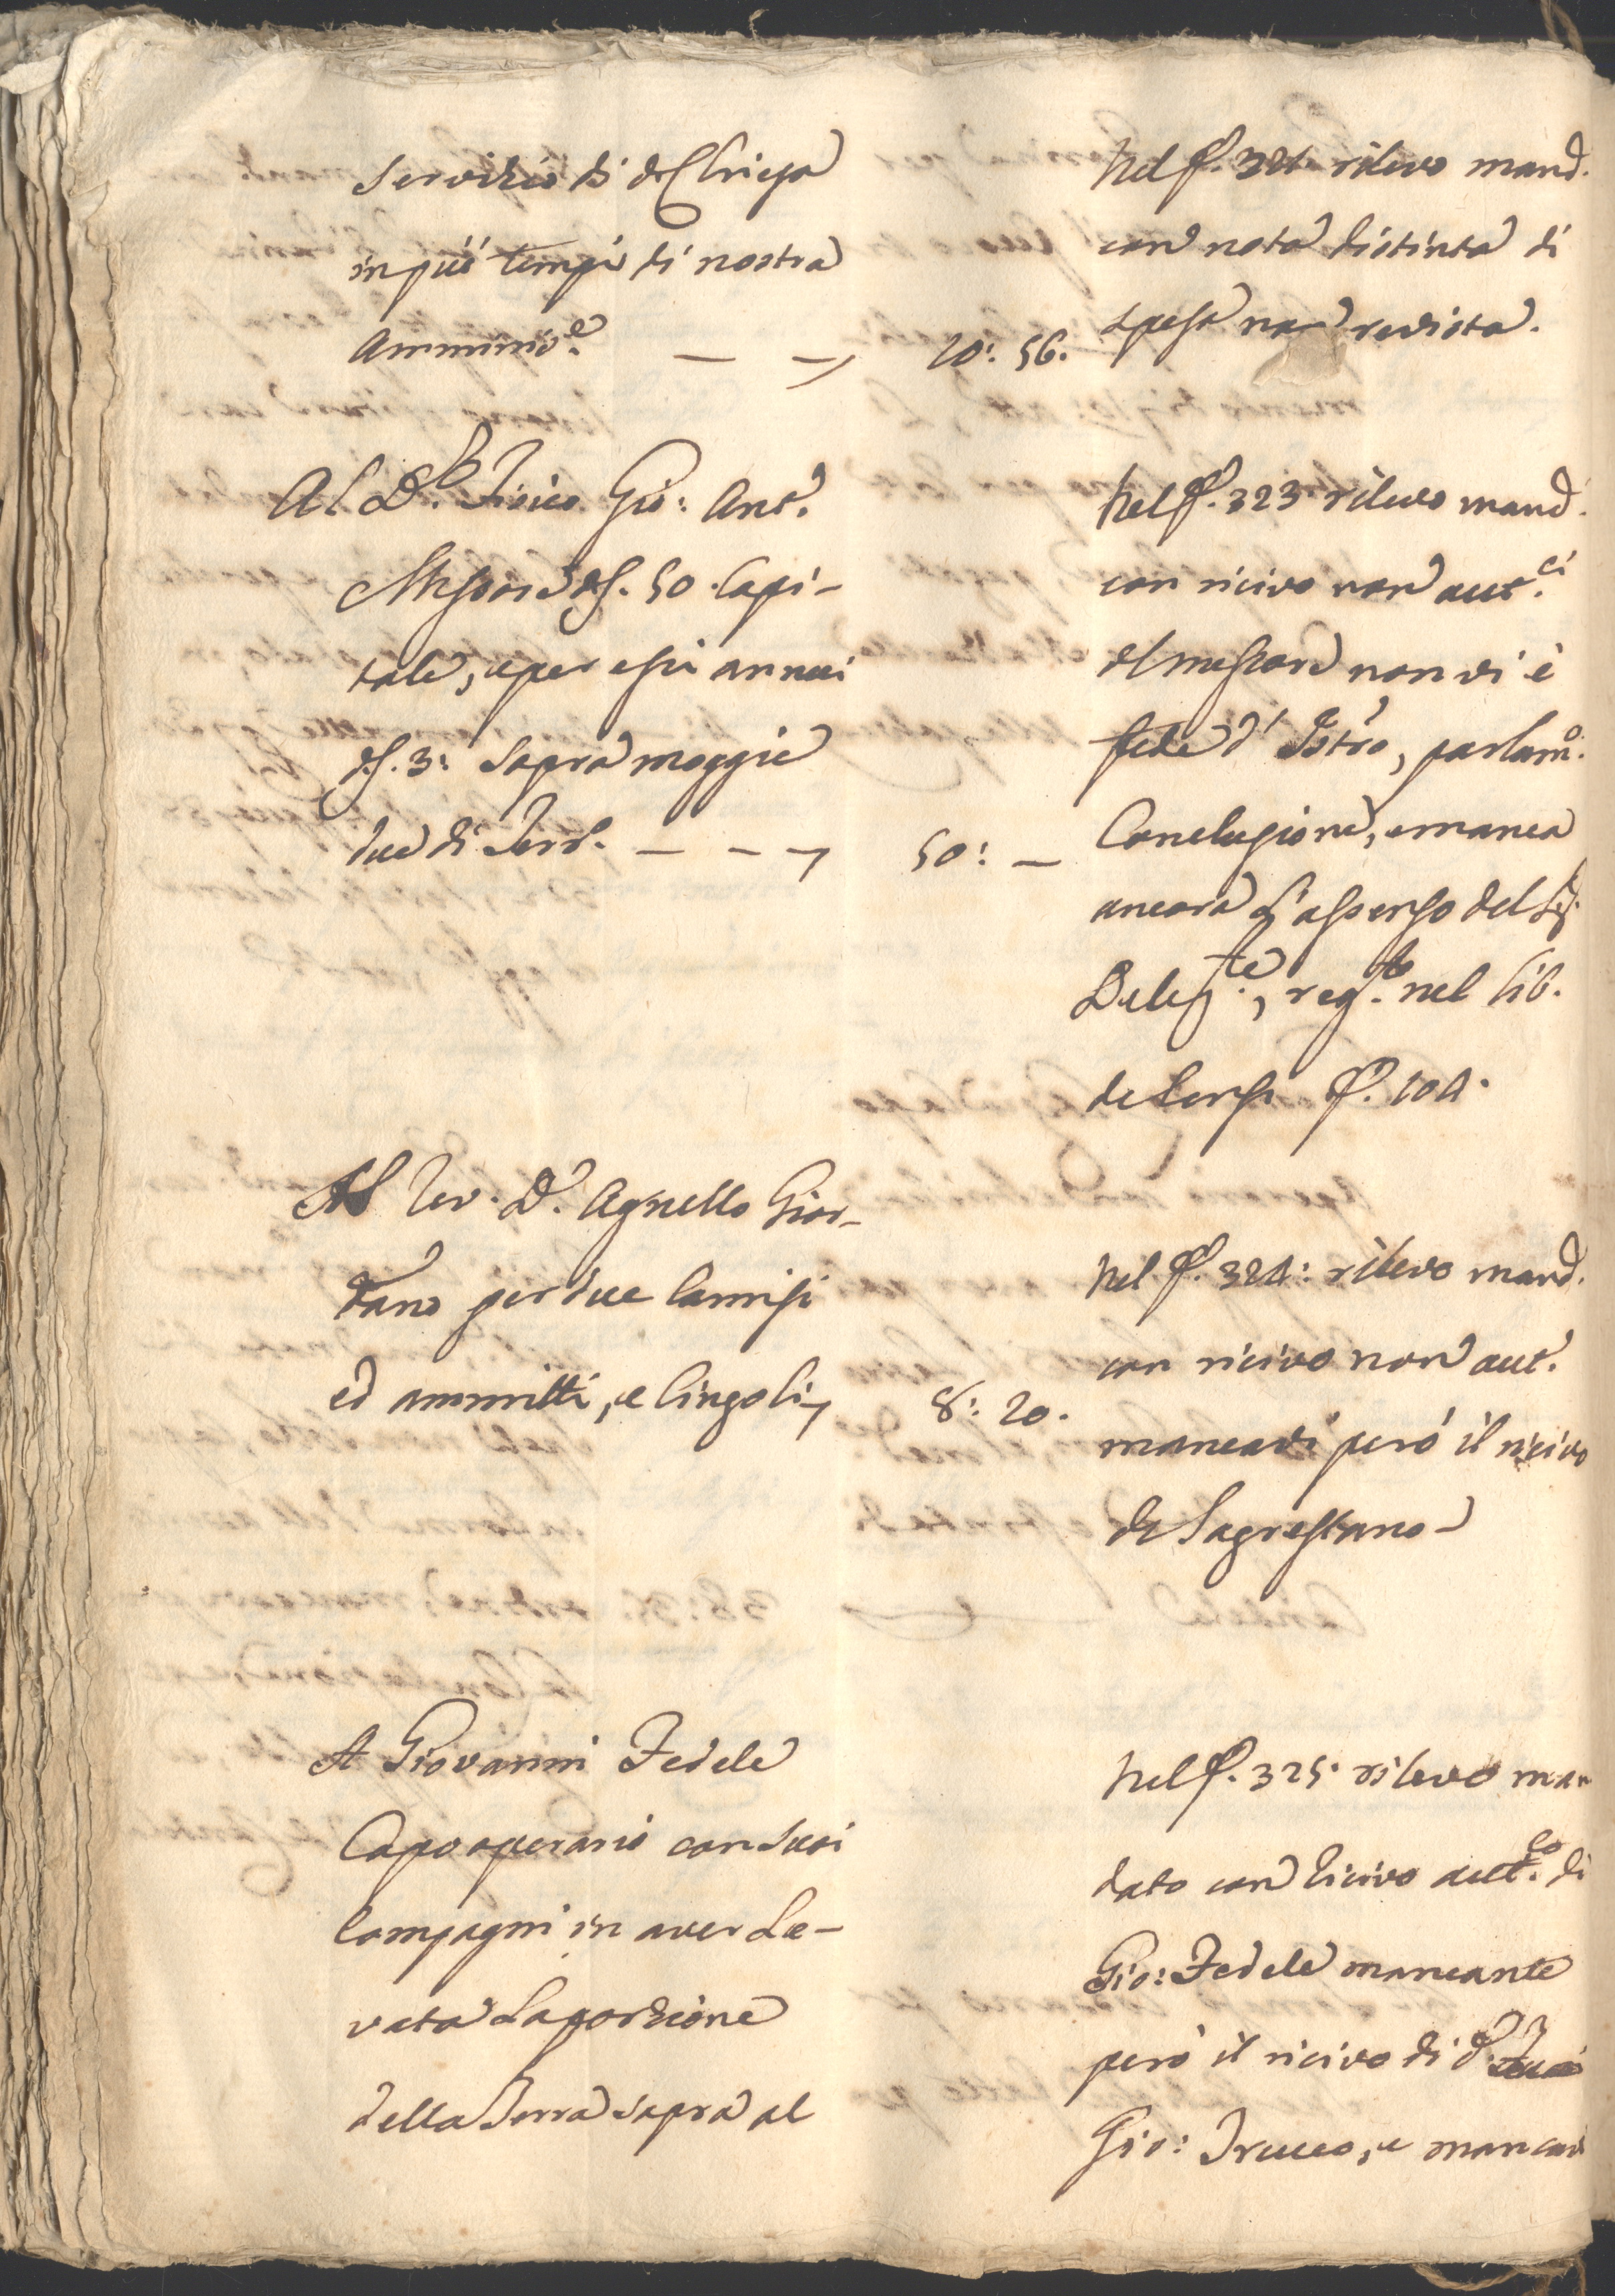 Servizio di d.ª Chiesa
in più tempi di nostra
Amminis.e — — 20: 56.
Nel f. 321 rilevo mand.
con nota distinta di
spesa non revista.
Al D.r Fisico Gio: Ant.
Messore d. 50 Capi-
tale, e per essi annui
d. 3: sopra moggie
due di Terr. — — — 50: —
Nel f. 323 rilevo mand.
con ricivo non aut.ci
del messore non vi è
fede d' Istro, parlam.o
Conclusione, e manca
ancora l'assenso del Sig.
Deleg.te, reg.to nel lib.
de Censi f. 104.
Al Rev. D. Agnello Gior-
dano per due Camisi
ed ammitti, e Cingoli 8: 20.
Nel f. 324: rilevo mand.
con ricivo non aut.
mancavi però il ricivo
del Sagrestano
A Giovanni Fedele
Capo operario con suoi
Compagni in aver Le-
vata La porzione
della Terra sopra al
Nel f. 325. rilevo man
dato con ricivo aut.co di
Gio: Fedele mancante
però il ricivo di d.
Gio: Trucco, e mancavi